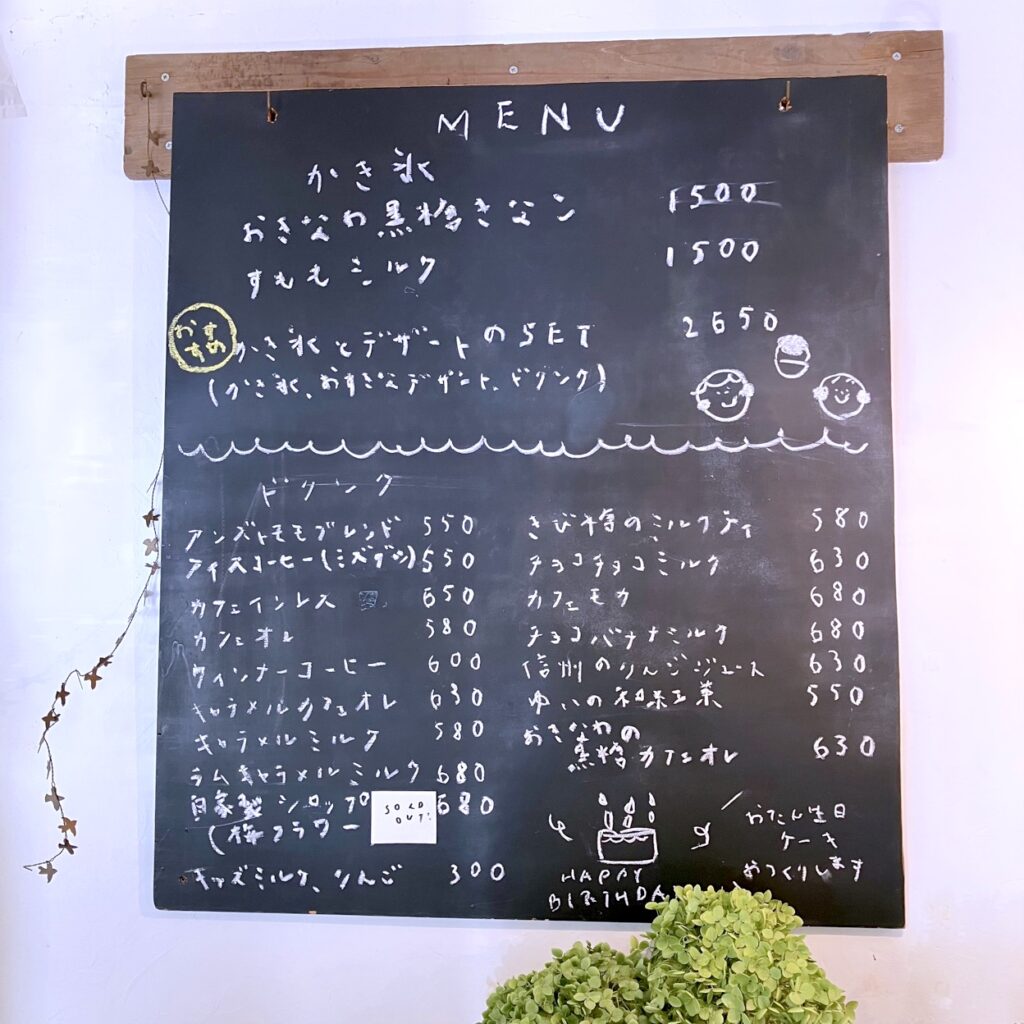 MENU
かき氷
おきなわ黒糖きなこ 1500
すももミルク 1500
おすすめ
かき氷とデザートのSET 2650
(かき氷、おすきなデザート、ドリンク)
ドリンク
アンズトモモブレンド 550
アイスコーヒー(ミズダシ) 550
カフェインレス 650
カフェオレ 580
ウィンナーコーヒー 600
キャラメルカフェオレ 630
キャラメルミルク 580
ラムキャラメルミルク 680
自家製シロップ 680
(梅フラワー
SOLD
OUT!
キッズミルク、りんご 300
きび糖のミルクティ 580
チョコチョコミルク 630
カフェモカ 680
チョコバナナミルク 680
信州のりんごジュース 630
ゆいの和紅茶 550
おきなわの
黒糖カフェオレ 630
HAPPY
BIRTHDA
おたん生日
ケーキ
おつくりします